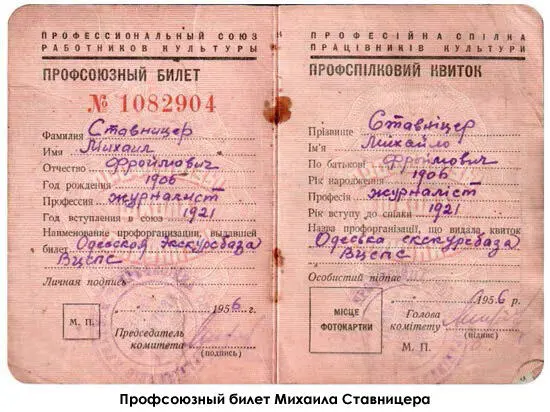 ПРОФЕССИОНАЛЬНЫЙ СОЮЗ
РАБОТНИКОВ КУЛЬТУРЫ
ПРОФСОЮЗНЫЙ БИЛЕТ
№ 1082904
Фамилия Ставницер
Имя Михаил
Отчество Фроймович
Год рождения 1906
Профессия журналист
Год вступления в союз 1921
Наименование профорганизации, выдавшей
билет Одесской Экскурсбаза
ВЦСПС
Личная подпись
1956 г.
М. П.
Председатель
комитета
(подпись)
ПРОФЕСІЙНА СПІЛКА
ПРАЦІВНИКІВ КУЛЬТУРИ
ПРОФСПІЛКОВИЙ КВИТОК
Прізвище Ставніцер
Ім'я Михайло
По батькові Фроймович
Рік народження 1906
Професія журналіст
Рік вступу до спілки 1921
Назва профорганізації, що видала квиток
Одеська екскурсбаза
ВЦСПС
Особистий підпис
1956 р.
МІСЦЕ
ФОТОКАРТКИ
Голова
комітету
(підпис)
М. П.
Профсоюзный билет Михаила Ставницера